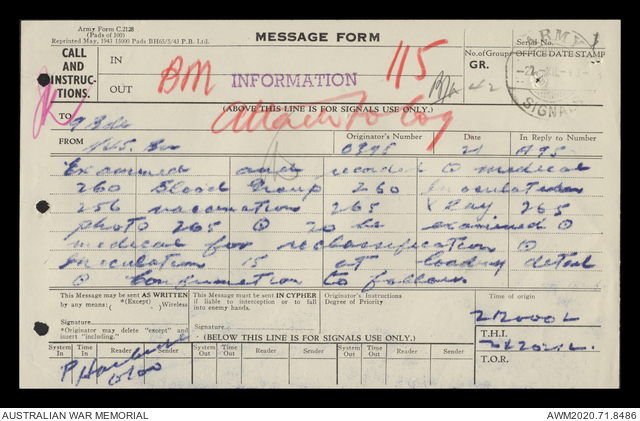 Army Form C.2128
(Pads of 100)
Reprinted May, 1943 15000 Pads BH65/5/43 P.B. Ltd.
MESSAGE FORM
Serial No.
CALL AND INSTRUC-TIONS.
IN
OUT
BM
INFORMATION
115
No. of Groups
GR.
42
OFFICE DATE STAMP
ARMY
SIGNALS
(ABOVE THIS LINE IS FOR SIGNALS USE ONLY.)
Attach to Log
TO 9 Bde
FROM
Originator's Number
Date
21
In Reply to Number
A95
Examined and recorded ⊙ medical
260 Blood Group 260 Inoculation
256 vaccination 265 X Ray 265
photo 265 ⊙ 20 be examined ⊙
medical for reclassification ⊙
Inoculation 15 at loading detail
⊙ confirmation to follow
This Message may be sent AS WRITTEN by any means: (Except) Wireless
Signature
*Originator may delete "except" and insert "including."
This Message must be sent IN CYPHER if liable to interception or to fall into enemy hands.
Signature
Originator's Instructions
Degree of Priority
Time of origin
212000L
T.H.I.
T.O.R.
(BELOW THIS LINE IS FOR SIGNALS USE ONLY.)
System In
Time In
Reader
Sender
System Out
Time Out
Reader
Sender
System Out
Time Out
Reader
Sender
AUSTRALIAN WAR MEMORIAL
AWM2020.71.8486